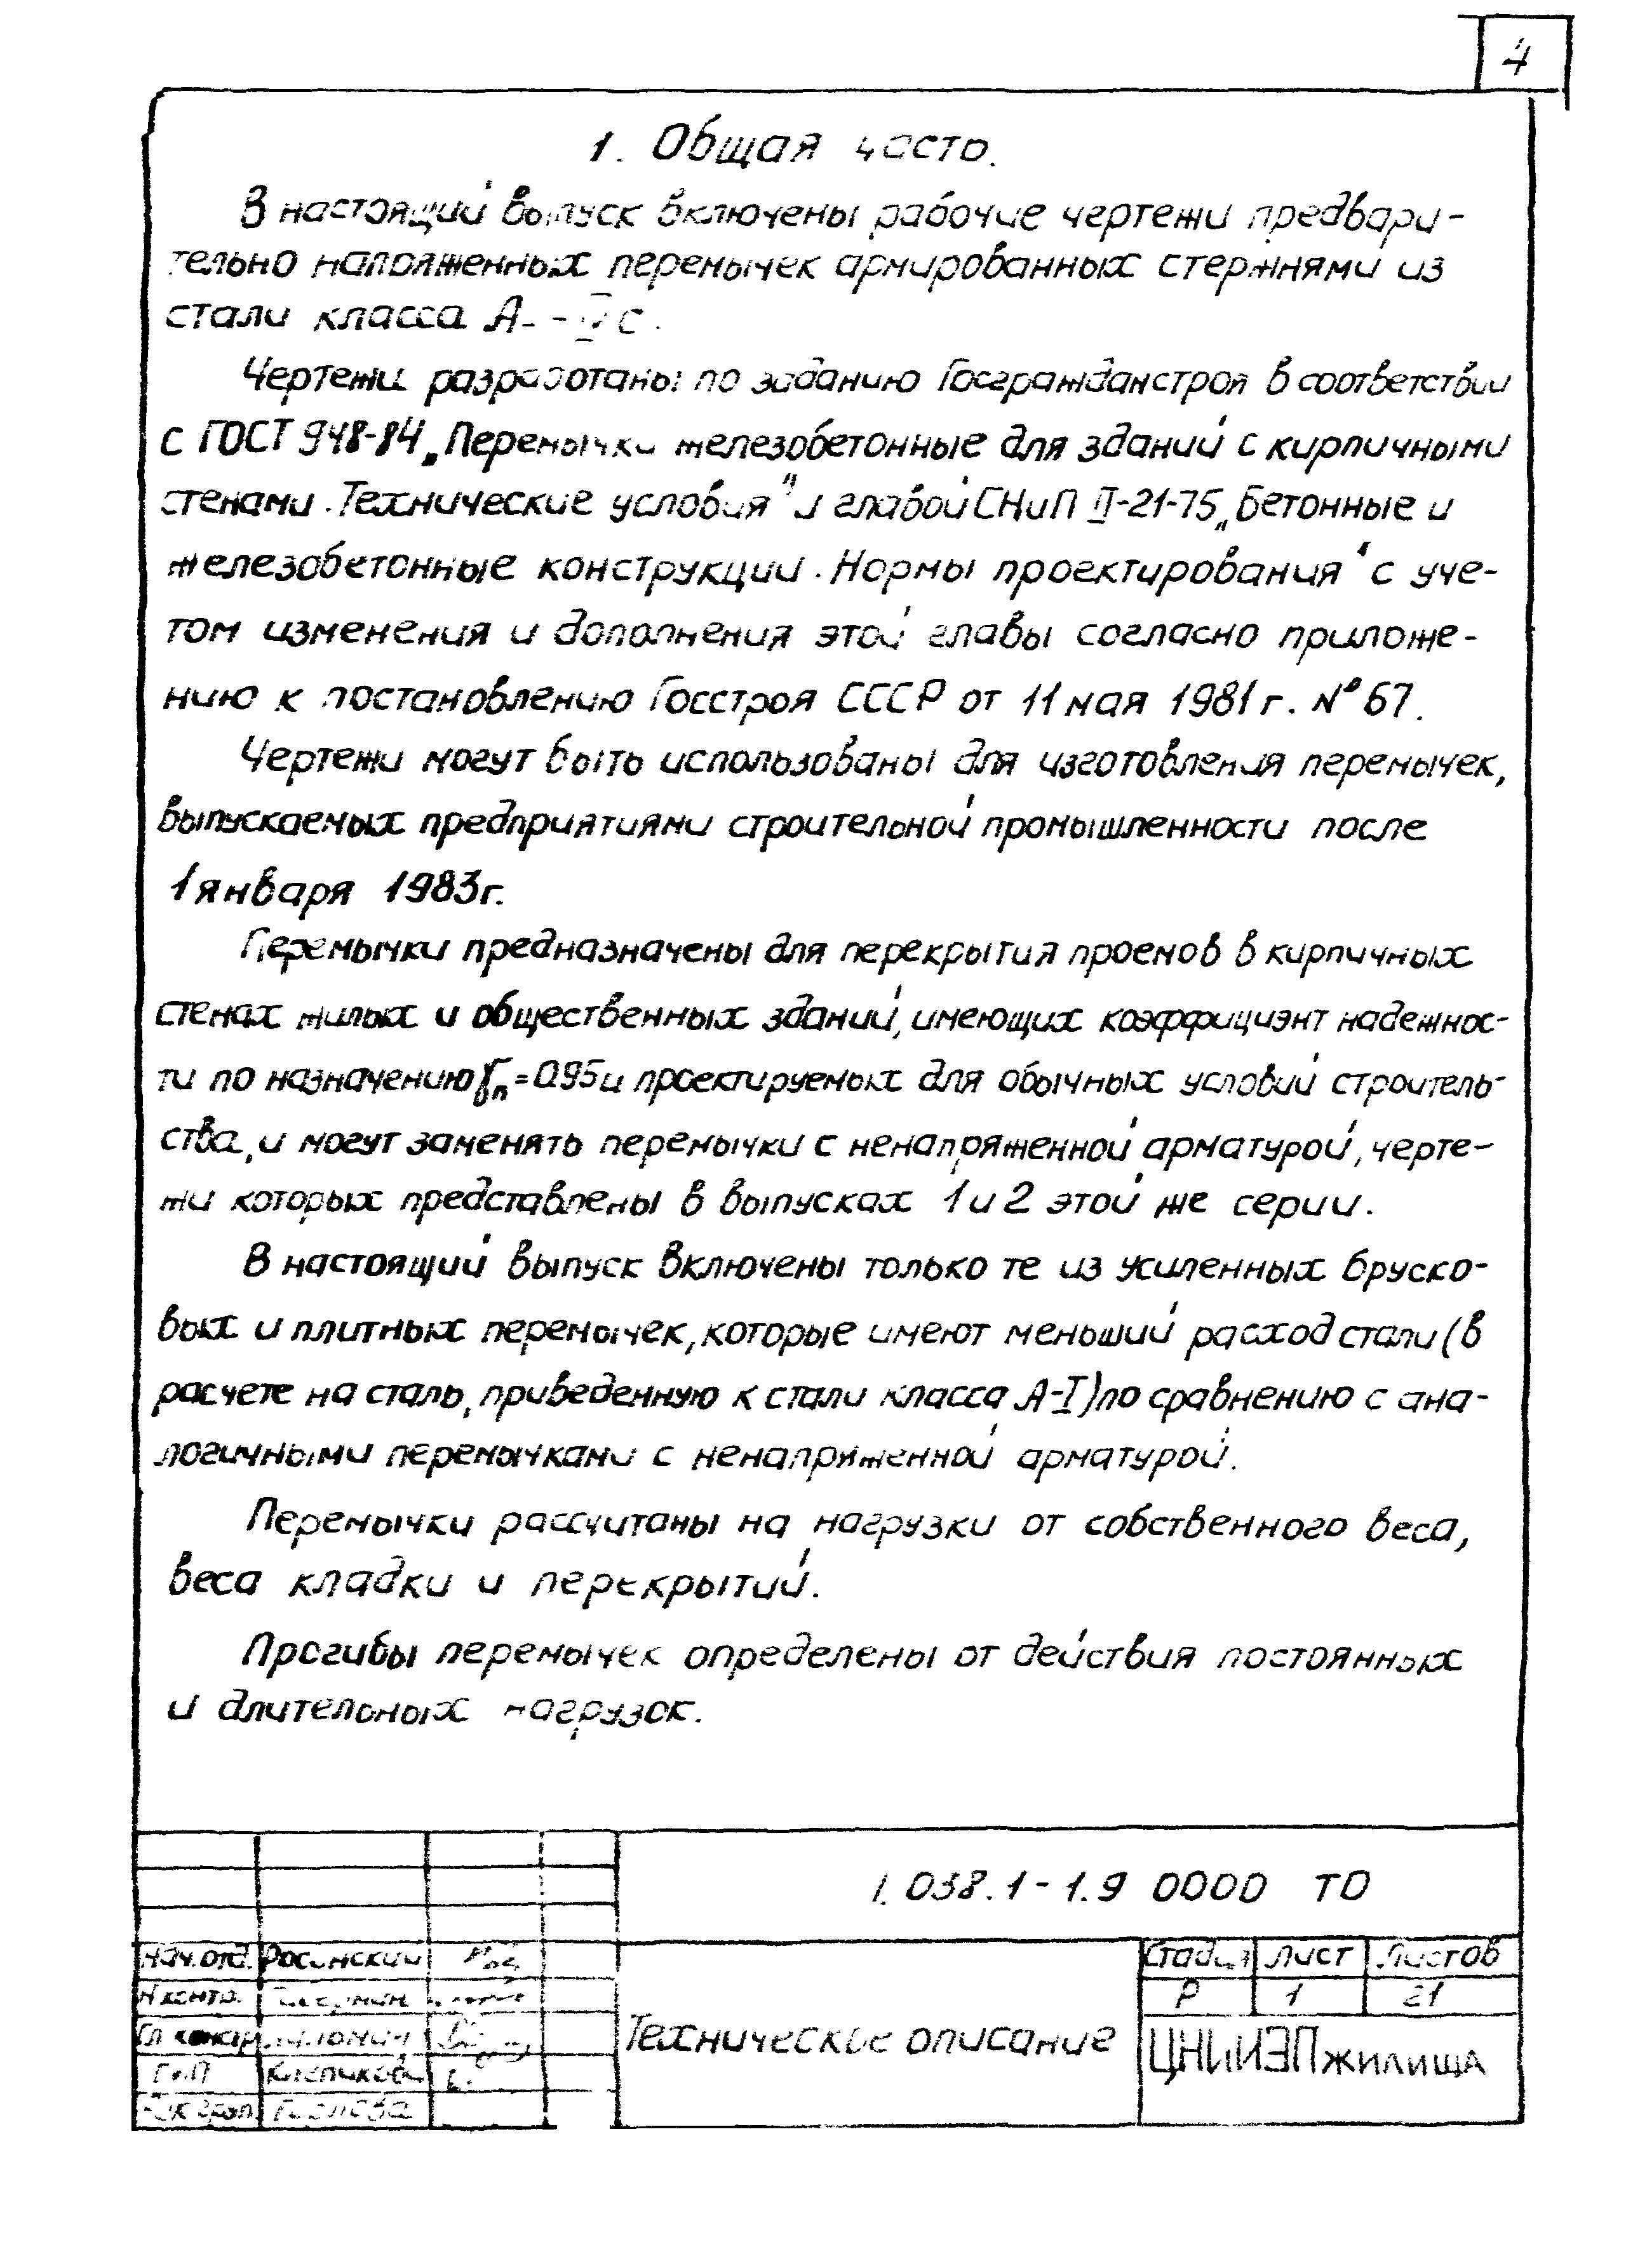 4
1. Общая часть.
В настоящий выпуск включены рабочие чертежи предвари-
тельно напряженных перемычек армированных стержнями из
стали класса А- - IV С.
Чертежи разработаны по заданию Госгражданстроя в соответствии
с ГОСТ 948-84 „Перемычки железобетонные для зданий с кирпичными
стенами. Технические условия" и главой СНиП II-21-75 „Бетонные и
железобетонные конструкции. Нормы проектирования" с уче-
том изменения и дополнения этой главы согласно приложе-
нию к постановлению Госстроя СССР от 11 мая 1981 г. № 67.
Чертежи могут быть использованы для изготовления перемычек,
выпускаемых предприятиями строительной промышленности после
1 января 1983 г.
Перемычки предназначены для перекрытия проемов в кирпичных
стенах жилых и общественных зданий, имеющих коэффициэнт надежнос-
ти по назначению γn = 0.95 и проектируемых для обычных условий строитель-
ства, и могут заменять перемычки с ненапряженной арматурой, черте-
жи которых представлены в выпусках 1 и 2 этой же серии.
В настоящий выпуск включены только те из усиленных бруско-
вых и плитных перемычек, которые имеют меньший расход стали (в
расчете на сталь, приведенную к стали класса А-I) по сравнению с ана-
логичными перемычками с ненапряженной арматурой.
Перемычки рассчитаны на нагрузки от собственного веса,
веса кладки и перекрытий.
Прогибы перемычек определены от действия постоянных
и длительных нагрузок.
1.038.1-1.9 0000 ТО
Нач.отд. Росинский
Н контр.
Гл. констр.
ГИП
Рук. груп.
Техническое описание
Стадия Лист Листов
Р 1 21
ЦНИИЭП жилища